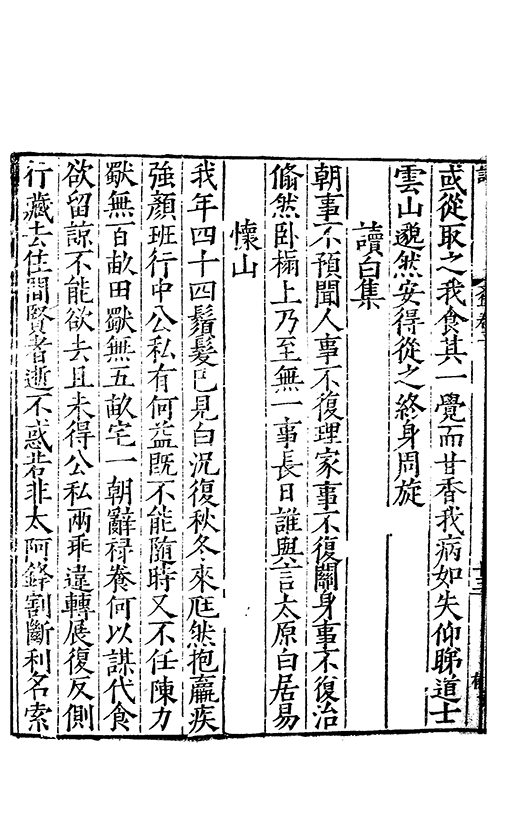 或從取之我食其一覺而甘香我病如失仰睇道士
雲山邈然安得從之終身周旋
讀白集
朝事不預聞人事不復理家事不復關身事不復治
翛然卧榻上乃至無一事長日誰與言太原白居易
懷山
我年四十四鬚髮已見白况復秋冬來尫然抱羸疾
強顏班行中公私有何益既不能隨時又不任陳力
歜無百畝田歜無五畝宅一朝辭祿養何以謀代食
欲留諒不能欲去且未得公私兩乖違轉展復反側
行藏去住間賢者逝不惑若非太阿鋒割斷利名索